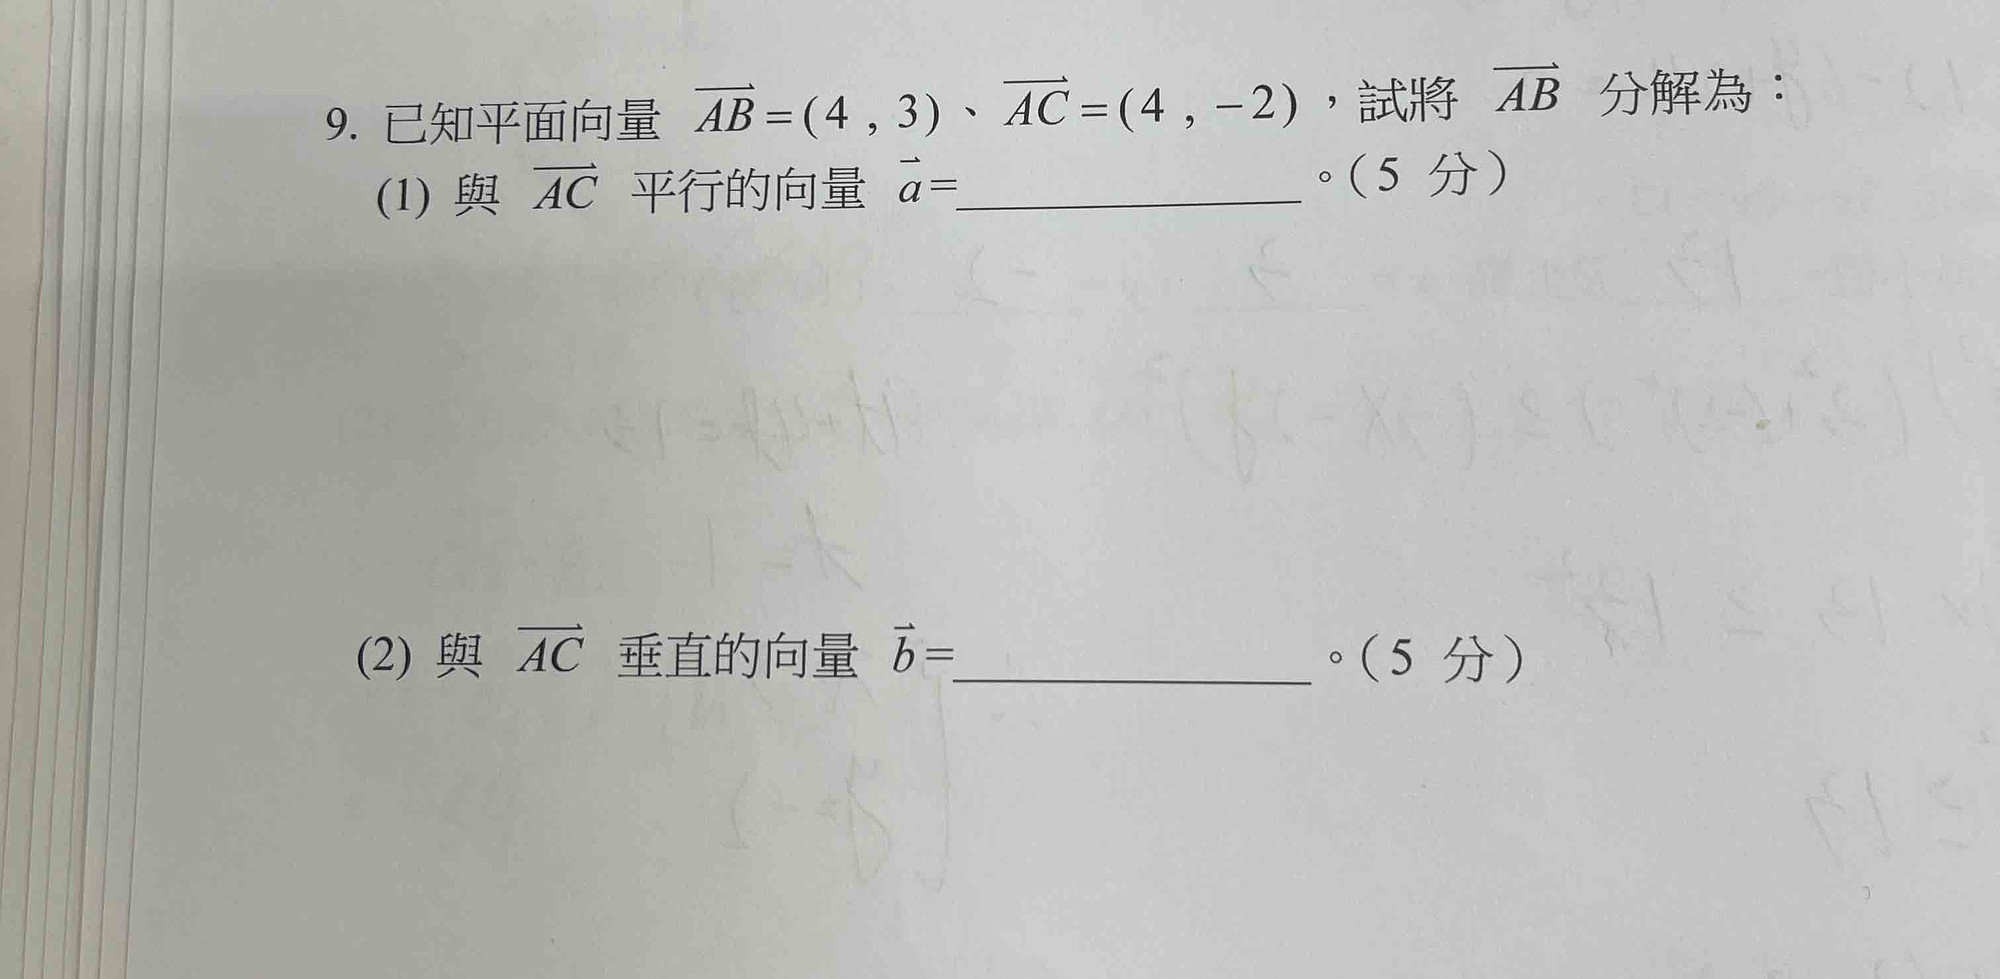 9. 已知平面向量 AB=(4 , 3)、AC=(4 , −2)，試將 AB 分解為：
(1) 與 AC 平行的向量 a=＿＿＿＿＿＿。(5 分)
(2) 與 AC 垂直的向量 b=＿＿＿＿＿＿。(5 分)